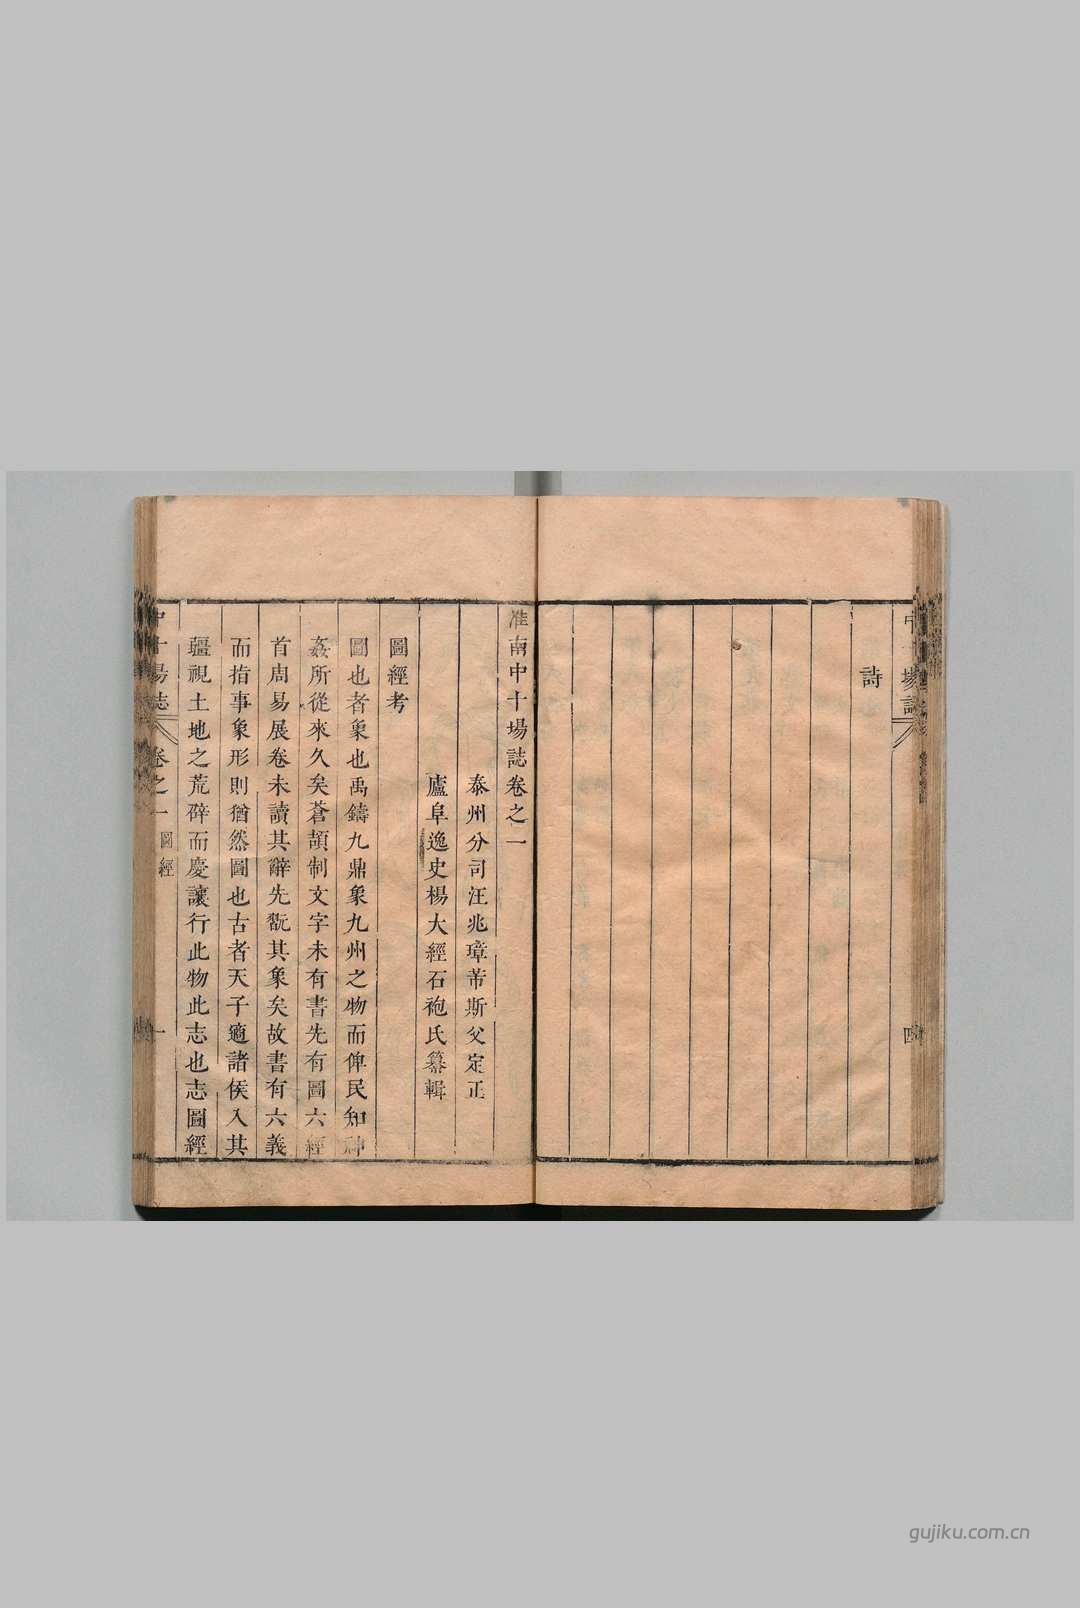 詩
四
淮南中十場誌卷之一
泰州分司汪兆璋芾斯父定正
廬阜逸史楊大經石袍氏纂輯
圖經考
圖也者象也禹鑄九鼎象九州之物而俾民知神
姦所從來久矣蒼頡制文字未有書先有圖六經
首周易展卷未讀其辭先翫其象矣故書有六義
而指事象形則猶然圖也古者天子適諸侯入其
疆視土地之荒辟而慶讓行此物此志也志圖經
中十場誌 卷之一 圖經 一
gujiku.com.cn